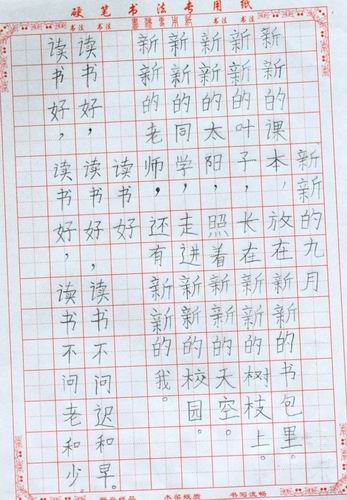 硬笔书法专用纸
新新的九月
新新的课本,放在新新的书包里。
新新的叶子,长在新新的树枝上。
新新的太阳,照着新新的天空。
新新的同学,走进新新的校园。
新新的老师,还有新新的我。
读书好
读书好,读书好,读书不问迟和早。
读书好,读书好,读书不问老和少。
书写流畅